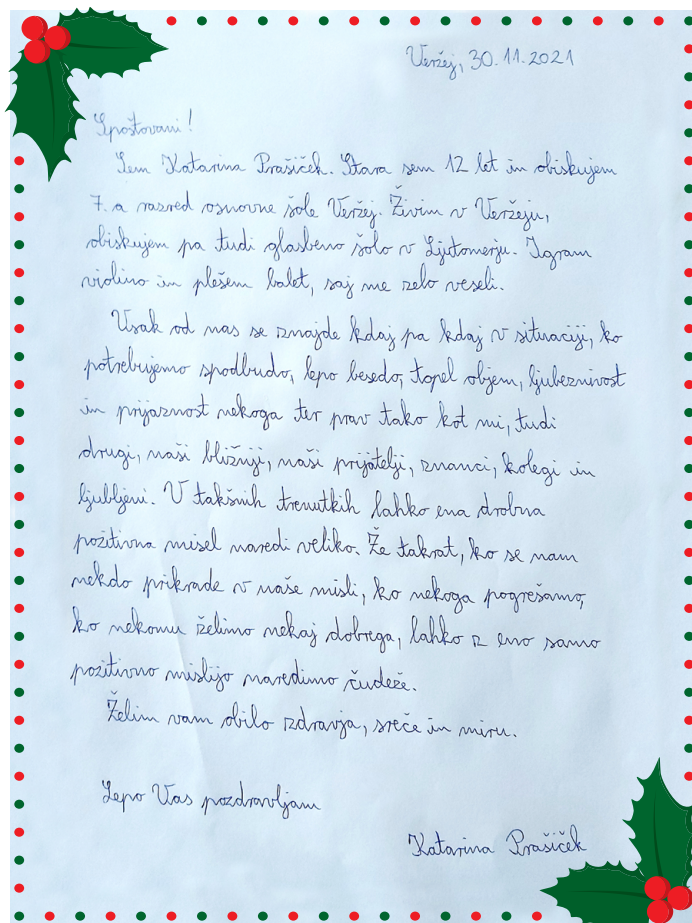 Veržej, 30.11.2021
Spoštovani!
Sem Katarina Prašiček. Stara sem 12 let in obiskujem
7. a razred osnovne šole Veržej. Živim v Veržeju,
obiskujem pa tudi glasbeno šolo v Ljutomerju. Igram
violino in plešem balet, saj me zelo veseli.
Vsak od nas se znajde kdaj pa kdaj v situaciji, ko
potrebujemo spodbudo, lepo besedo, topel objem, ljubeznivost
in prijaznost nekoga ter prav tako kot mi, tudi
drugi, naši bližnji, naši prijatelji, znanci, kolegi in
ljubljeni. V takšnih trenutkih lahko ena drobna
pozitivna misel naredi veliko. Že takrat, ko se nam
nekdo prikrade v naše misli, ko nekoga pogrešamo,
ko nekomu želimo nekaj dobrega, lahko z eno samo
pozitivno mislijo naredimo čudeže.
Želim vam obilo zdravja, sreče in miru.
Lepo Vas pozdravljam
Katarina Prašiček